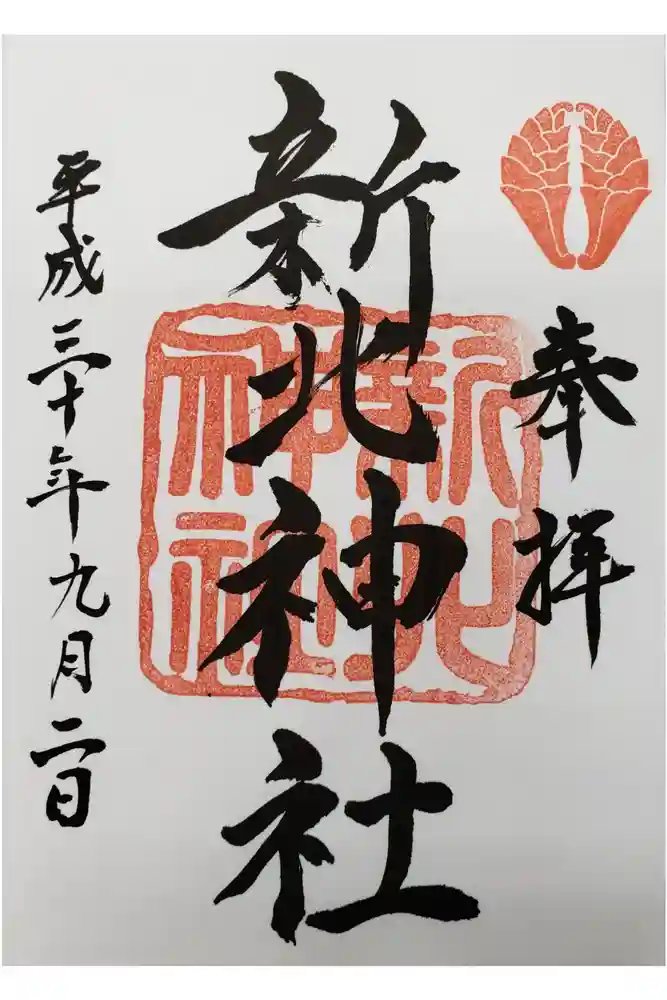 奉拝
新北神社
新北神社
平成三十年九月二日